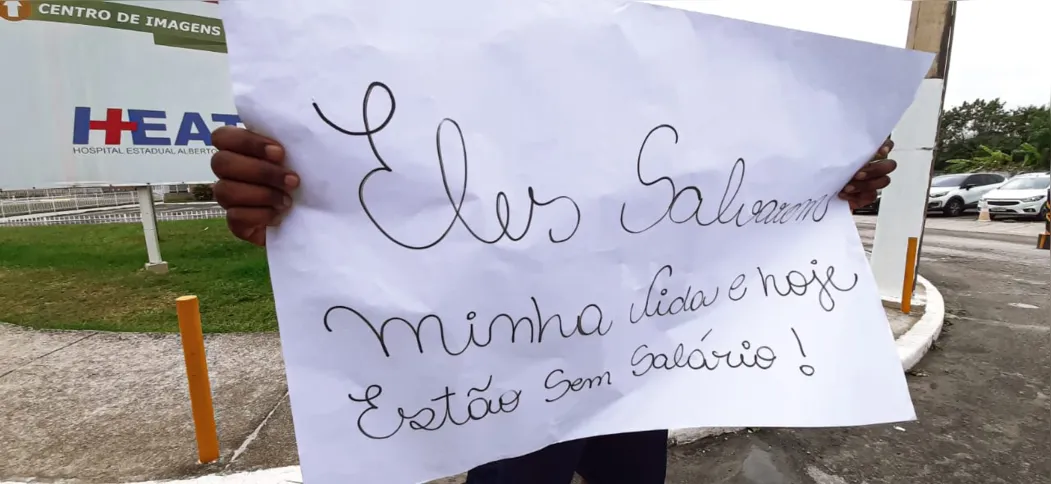 CENTRO DE IMAGENS
HEAT
HOSPITAL ESTADUAL ALBERTO
Eles Salvaram
minha vida e hoje
Estão sem salário!